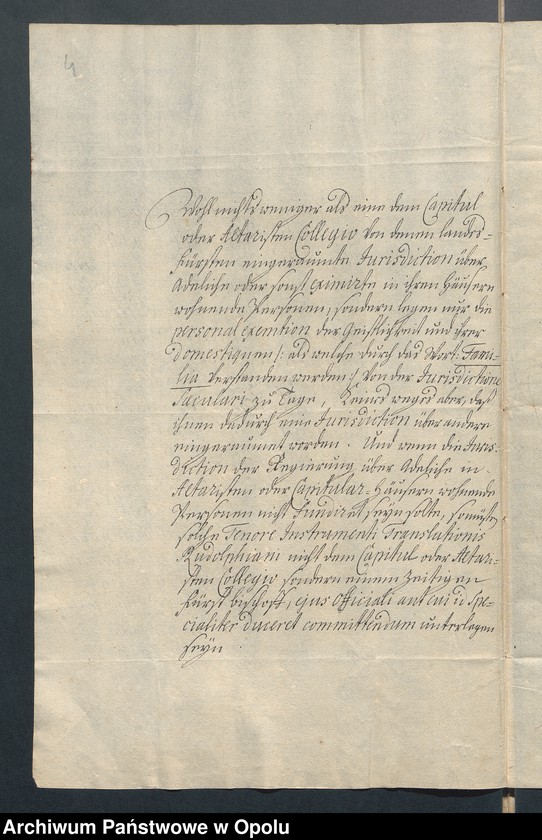 4
Wohl nichts weniger als eine dem Capitul
oder Altaristen Collegio von denen landes-
Fürsten eingeraumte Jurisdiction über
Adeliche oder sonst eximirte in ihren Häusern
wohnende Personen, sondern legen nur die
personal exemtion der Geistlichkeit und ihrer
Domestiquen /: als welche durch das Wort: Fami-
lia verstanden werden :/ von der Jurisdictione
Saeculari zu Tage, Keines weges aber, daß
ihnen dadurch eine Jurisdiction über andere
eingeraumet worden. Und wenn die Juris-
diction der Regierung über Adeliche in
Altaristen oder Capitular-Häusern wohnende
Personen nicht fundiret seyn solte, so müste
solche Tenore Instrumenti Translationis
Rudolphiani nicht dem Capitul oder Altari-
sten Collegio sondern einem zeitigen
Fürst bischoff, ejus Officiali aut cui id Spe-
cialiter duceret committendum unterlegen
seyn.
Archiwum Państwowe w Opolu